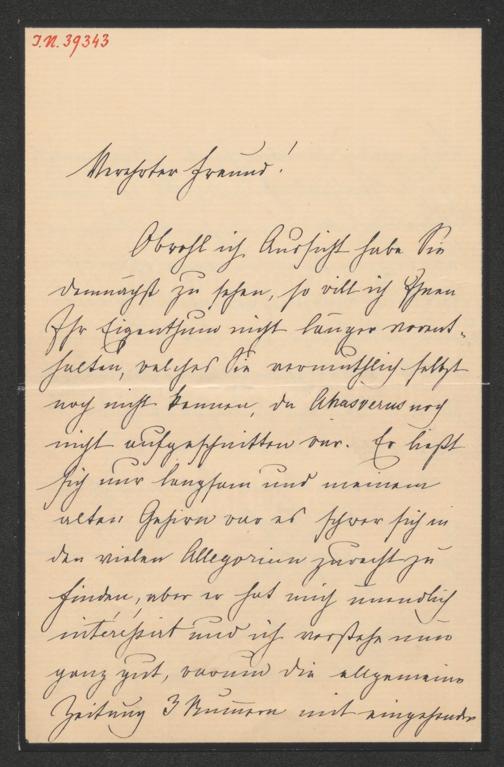 I.N. 39343
Verehrter Freund!
Obwohl ich Aussicht habe Sie
demnächst zu sehen, so will ich Ihnen
Ihr Eigenthum nicht länger vorent-
halten, welches Sie vermuthlich selbst
noch nicht kennen, da Ahasverus noch
nicht aufgeschnitten war. Er ließt
sich nur langsam und meinem
alten Gehirn war es schwer sich in
den vielen Allegorien zurecht zu
finden, aber er hat mich unendlich
interessirt und ich verstehe nun
ganz gut, warum die allgemeine
Zeitung 3 Num̄ern mit eingehender